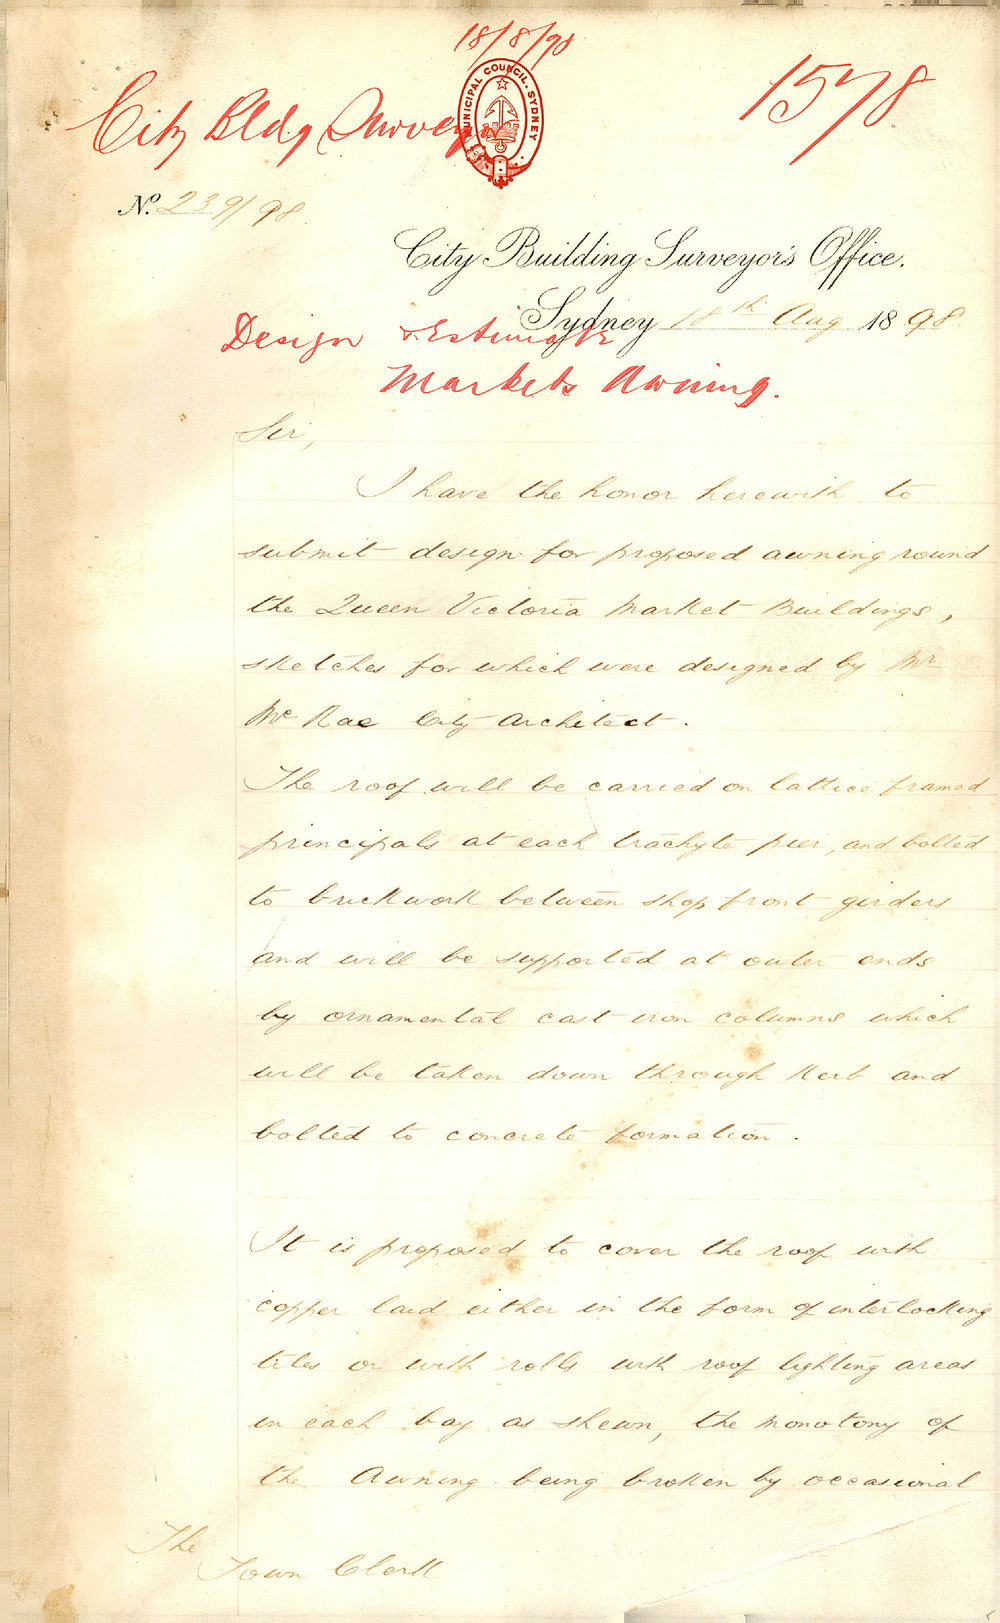 18/8/98
City Bldg Surveyor
1578
MUNICIPAL COUNCIL. SYDNEY
No. 239/98.
City Building Surveyor's Office.
Sydney 18th Aug 1898
Design & Estimate
Markets Awning.
Sir,
I have the honor herewith to
submit design for proposed awning round
the Queen Victoria Market Buildings,
sketches for which were designed by Mr
McRae City Architect.
The roof will be carried on lattice framed
principals at each trachyte pier, and bolted
to brickwork between shop front girders
and will be supported at outer ends
by ornamental cast iron columns which
will be taken down through kerb and
bolted to concrete formation.
It is proposed to cover the roof with
copper laid either in the form of interlocking
tiles or with rolls with roof lighting areas
in each bay as shewn, the monotony of
the Awning being broken by occasional
The
Town Clerk